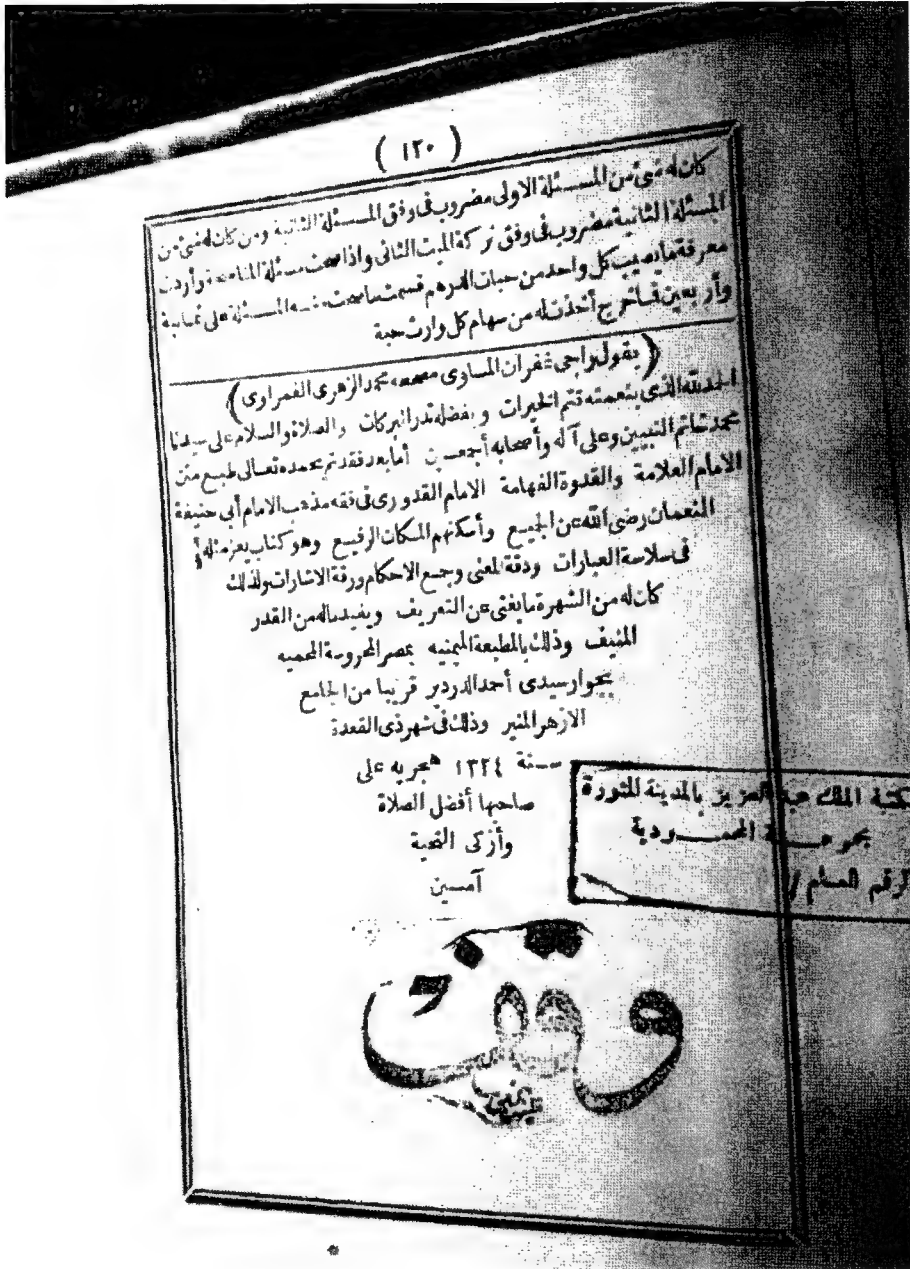 ( ١٢٠ )
كان له شئ من المسئلة الاولى مضروب فى وفق المسئلة الثانية ومن كان له شئ من
المسئلة الثانية مضروب فى وفق تركة الميت الثانى واذا صحت مسئلة المناسخة وأردت
معرفة ما يصيب كل واحد من حبات الدرهم قسمت ما صحت منه المسئلة على ثمانية
وأربعين فما خرج أخذت له من سهام كل وارث حبة
(يقول راجى غفران المساوى مصححه محمد الزهرى الغمراوى)
الحمد لله الذى بنعمته تتم الخيرات وبفضله تدر البركات والصلاة والسلام على سيدنا
محمد خاتم النبيين وعلى آله وأصحابه أجمعين أما بعد فقد تم بحمده تعالى طبع متن
الامام العلامة والقدوة الفهامة الامام القدورى فى فقه مذهب الامام أبى حنيفة
النعمان رضى الله عن الجميع وأسكنهم المكان الرفيع وهو كتاب يعز مثاله
فى سلاسة العبارات ودقة المعنى وجمع الاحكام ورقة الاشارات ولذلك
كان له من الشهرة ما يغنى عن التعريف ويفيد ماله من القدر
المنيف وذلك بالمطبعة الميمنيه بمصر المحروسة المحميه
بجوار سيدى أحمد الدردير قريبا من الجامع
الازهر المنير وذلك فى شهر ذى القعدة
سنة ١٣٢٤ هجريه على
صاحبها أفضل الصلاة
وأزكى التحية
آمسين
مكتبة الملك عبد العزيز بالمدينة المنورة
مجموعة المحمودية
الرقم العام /
وقف